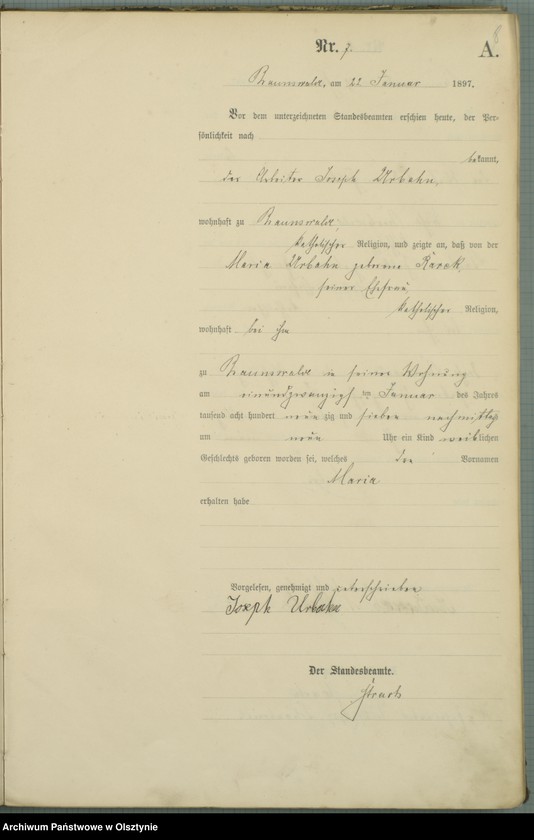 8
Nr. 7. A.
Braunswalde, am 22 Januar 1897.
Vor dem unterzeichneten Standesbeamten erschien heute, der Per-
sönlichkeit nach
bekannt,
der Arbeiter Joseph Urbahn,
wohnhaft zu Braunswalde,
katholischer Religion, und zeigte an, daß von der
Maria Urbahn geborene
seiner Ehefrau,
katholischer Religion,
wohnhaft bei ihm
zu Braunswalde in seiner Wohnung
am einundzwanzigsten Januar des Jahres
tausend acht hundert neun zig und sieben nachmittags
um neun Uhr ein Kind weiblichen
Geschlechts geboren worden sei, welches den Vornamen
Maria
erhalten habe
Vorgelesen, genehmigt und unterschrieben
Joseph Urbahn
Der Standesbeamte.
Archiwum Państwowe w Olsztynie